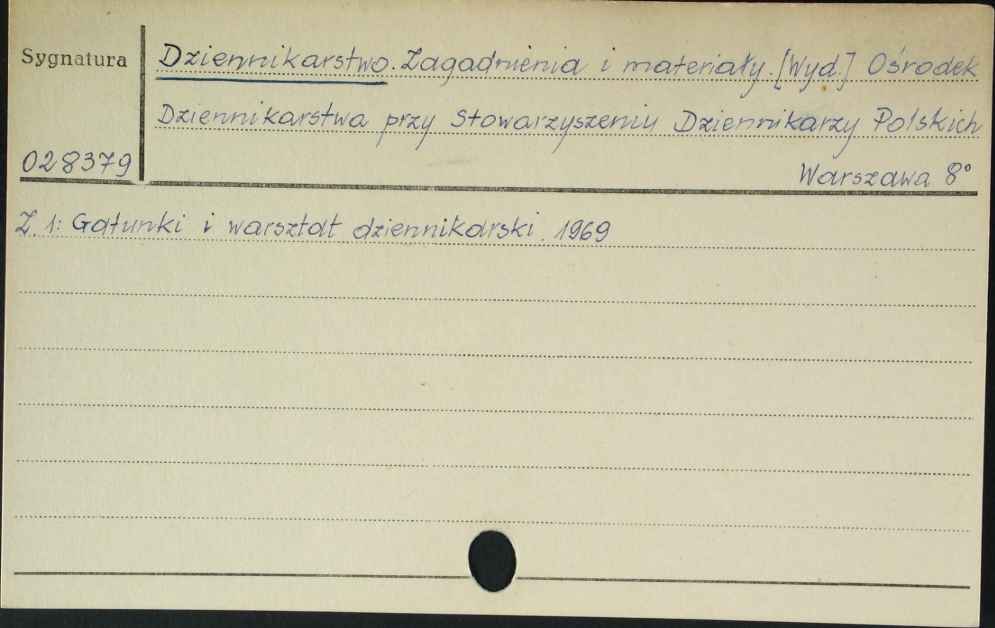 Sygnatura
Dziennikarstwo. Zagadnienia i materiały. [Wyd.] Ośrodek
Dziennikarstwa przy Stowarzyszeniu Dziennikarzy Polskich
028379
Warszawa 8°
Z. 1: Gatunki i warsztat dziennikarski. 1969